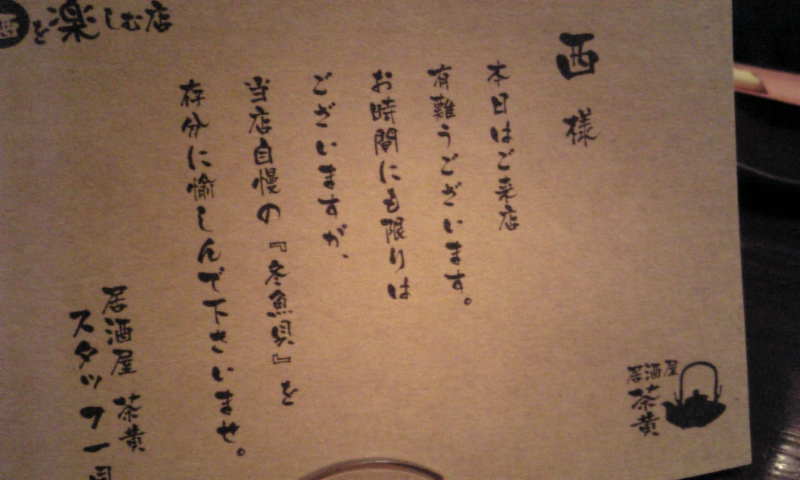 を楽しむ店
西 様
本日はご来店
有難うございます。
お時間にも限りは
ございますが、
当店自慢の『冬魚貝』を
存分に愉しんで下さいませ。
居酒屋 茶黄
スタッフ一同
居酒屋
茶黄